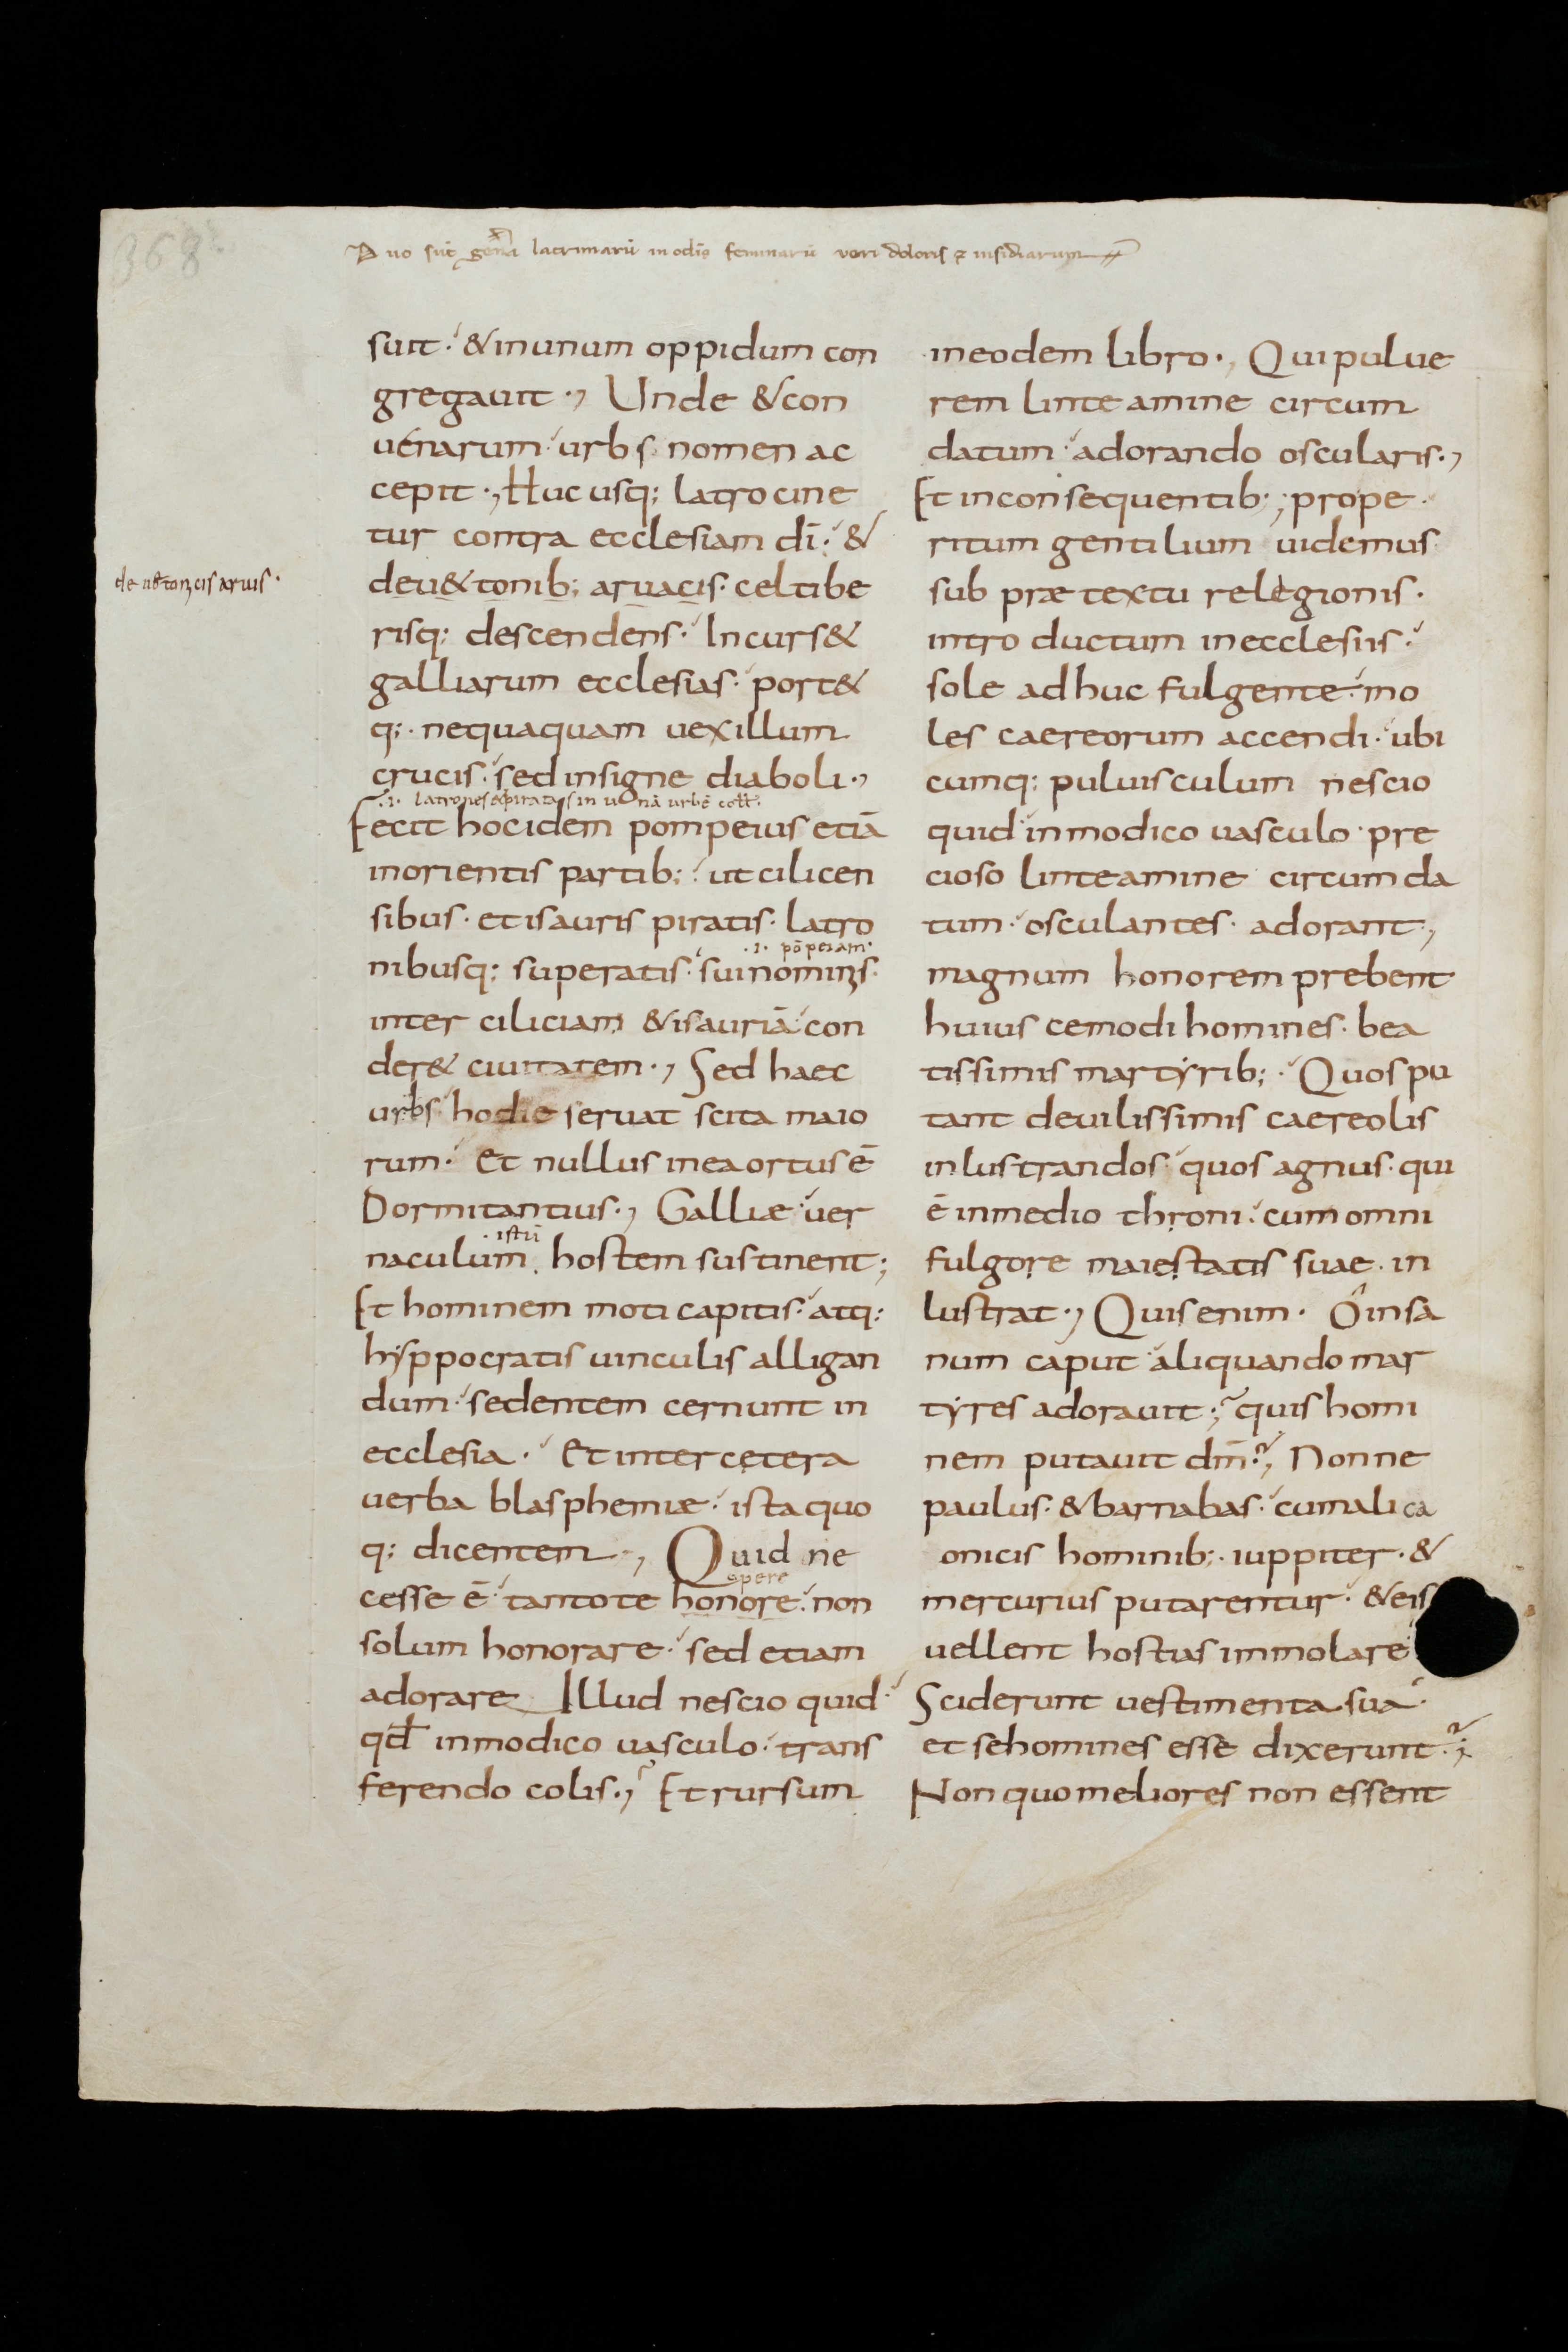 368
Duo st̄ genera lacrimarū in oculis feminarū veri doloris & insidiarum
suit. & in unum oppidum con
gregauit., Unde & con
uenarum urbs nomen ac
cepit., Hucusq; latrocine
tur contra ecclesiam dī. &
de u&tonib; aruacis. celtibe
risq; descendens. Incurs&
galliarum ecclesias. port&
q;. nequaquam uexillum
crucis. sed insigne diaboli.,
.i. latrones & piratas in unā urbē
Fecit hoc idem pompeius etiā
in orientis partib;. ut cilicen
sibus. et isauris piratis. latro
.i. pōpeiam.
nibusq; superatis. sui nominis.
inter ciliciam & isauriā con
der& ciuitatem., Sed haec
urbs hodie seruat scita maio
rum. Et nullus in ea ortus ē
Dormitantius., Galliæ uer
istū
naculum hostem sustinent;
Et hominem moti capitis. atq;
hyppocratis uinculis alligan
dum. sedentem cernunt in
ecclesia. Et inter cetera
uerba blasphemiæ. ista quo
q; dicentem., Quid ne
opere
cesse ē. tanto te honore. non
solum honorare. sed etiam
adorare Illud nescio quid.
qđ in modico uasculo. trans
ferendo colis., Et rursum
in eodem libro., Qui pulue
rem linteamine circum
datum. adorando oscularis.,
Et in consequentib;, prope
ritum gentilium uidemus
sub prætextu relegionis.
introductum in ecclesiis.
sole adhuc fulgente. mo
les caereorum accendi. ubi
cumq; puluisculum nescio
quid in modico uasculo. pre
cioso linteamine circumda
tum. osculantes. adorant.,
magnum honorem prebent
huiuscemodi homines. bea
tissimis martyrib;. Quos pu
tant de uilissimis caereolis
inlustrandos. quos agnus. qui
ē in medio throni. cum omni
fulgore maiestatis suae. in
lustrat., Quis enim. O insa
num caput aliquando mar
tyres adorauit;, quis homi
nem putauit dm̄?, Nonne
paulus. & barnabas. cum a lica
onicis hominib;. iuppiter. &
mercurius putarentur. & eis
uellent hostias immolare.
Sciderunt uestimenta sua.
et se homines esse dixerunt?;
Non quo meliores non essent